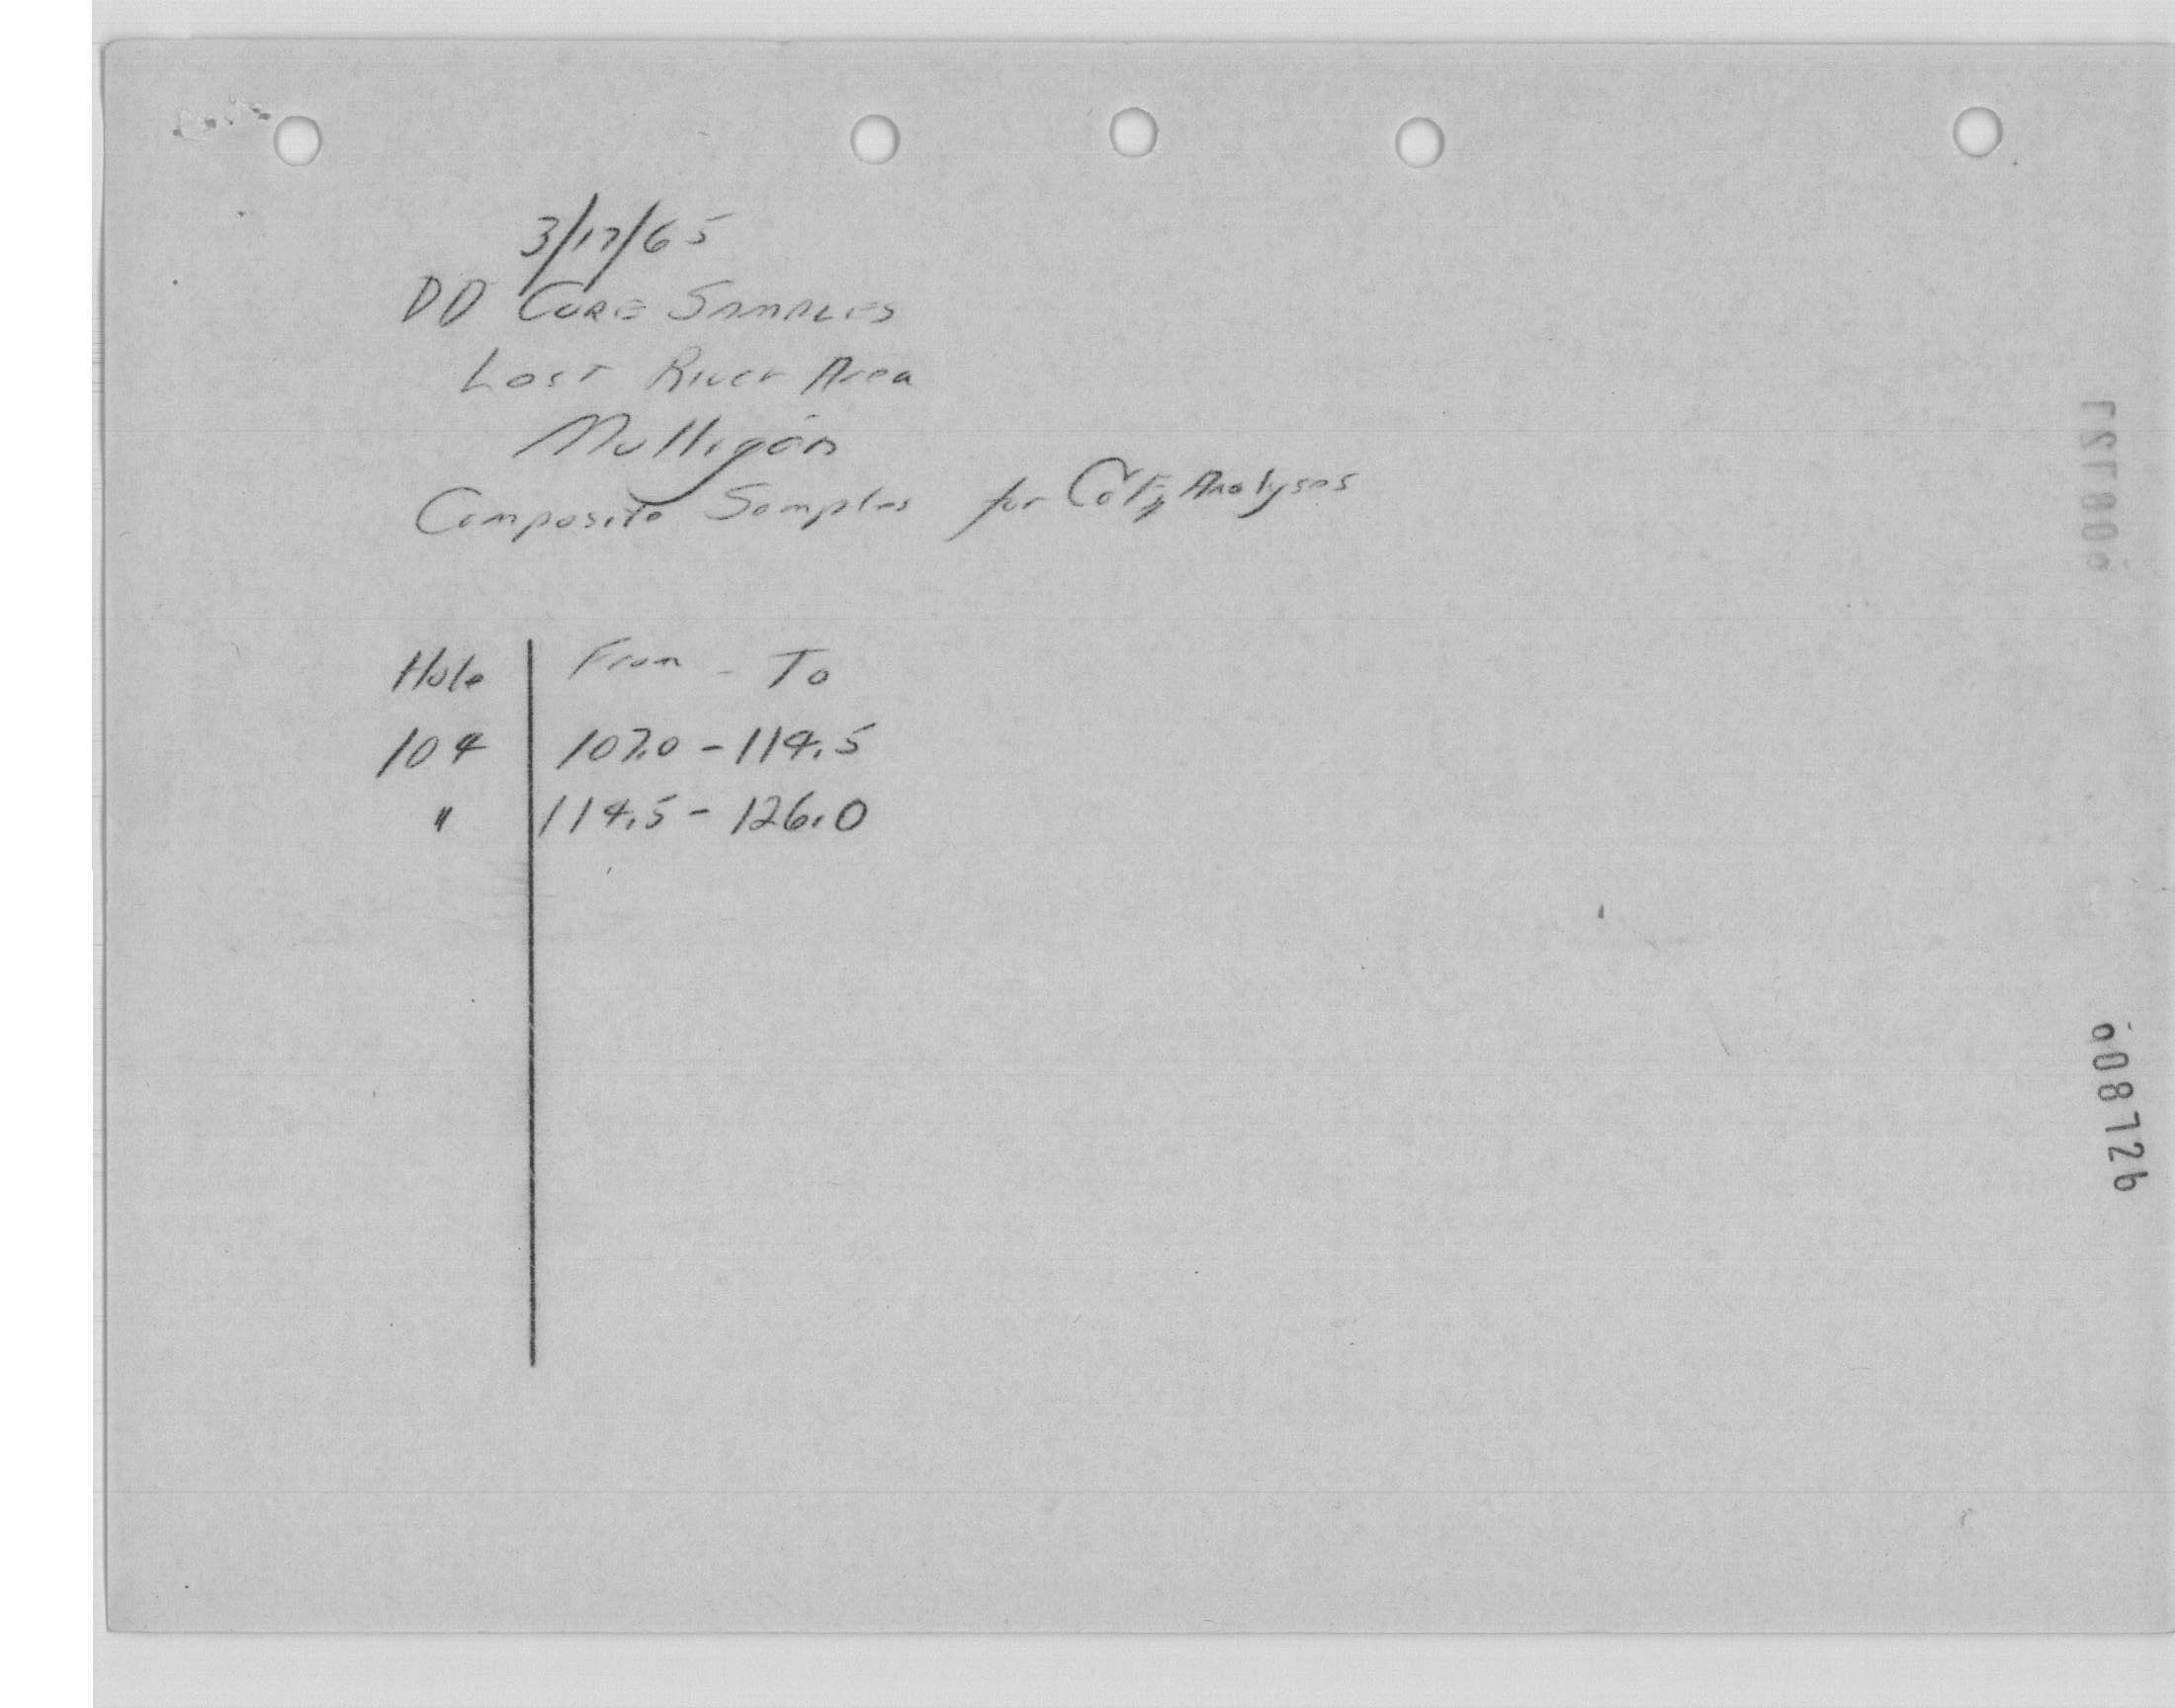 3/17/65
DD CORE SAMPLES
Lost River Area
Mulligan
Composite Samples for CaF2 Analyses
Hole From - To
104 107.0 - 114.5
" 114.5 - 126.0